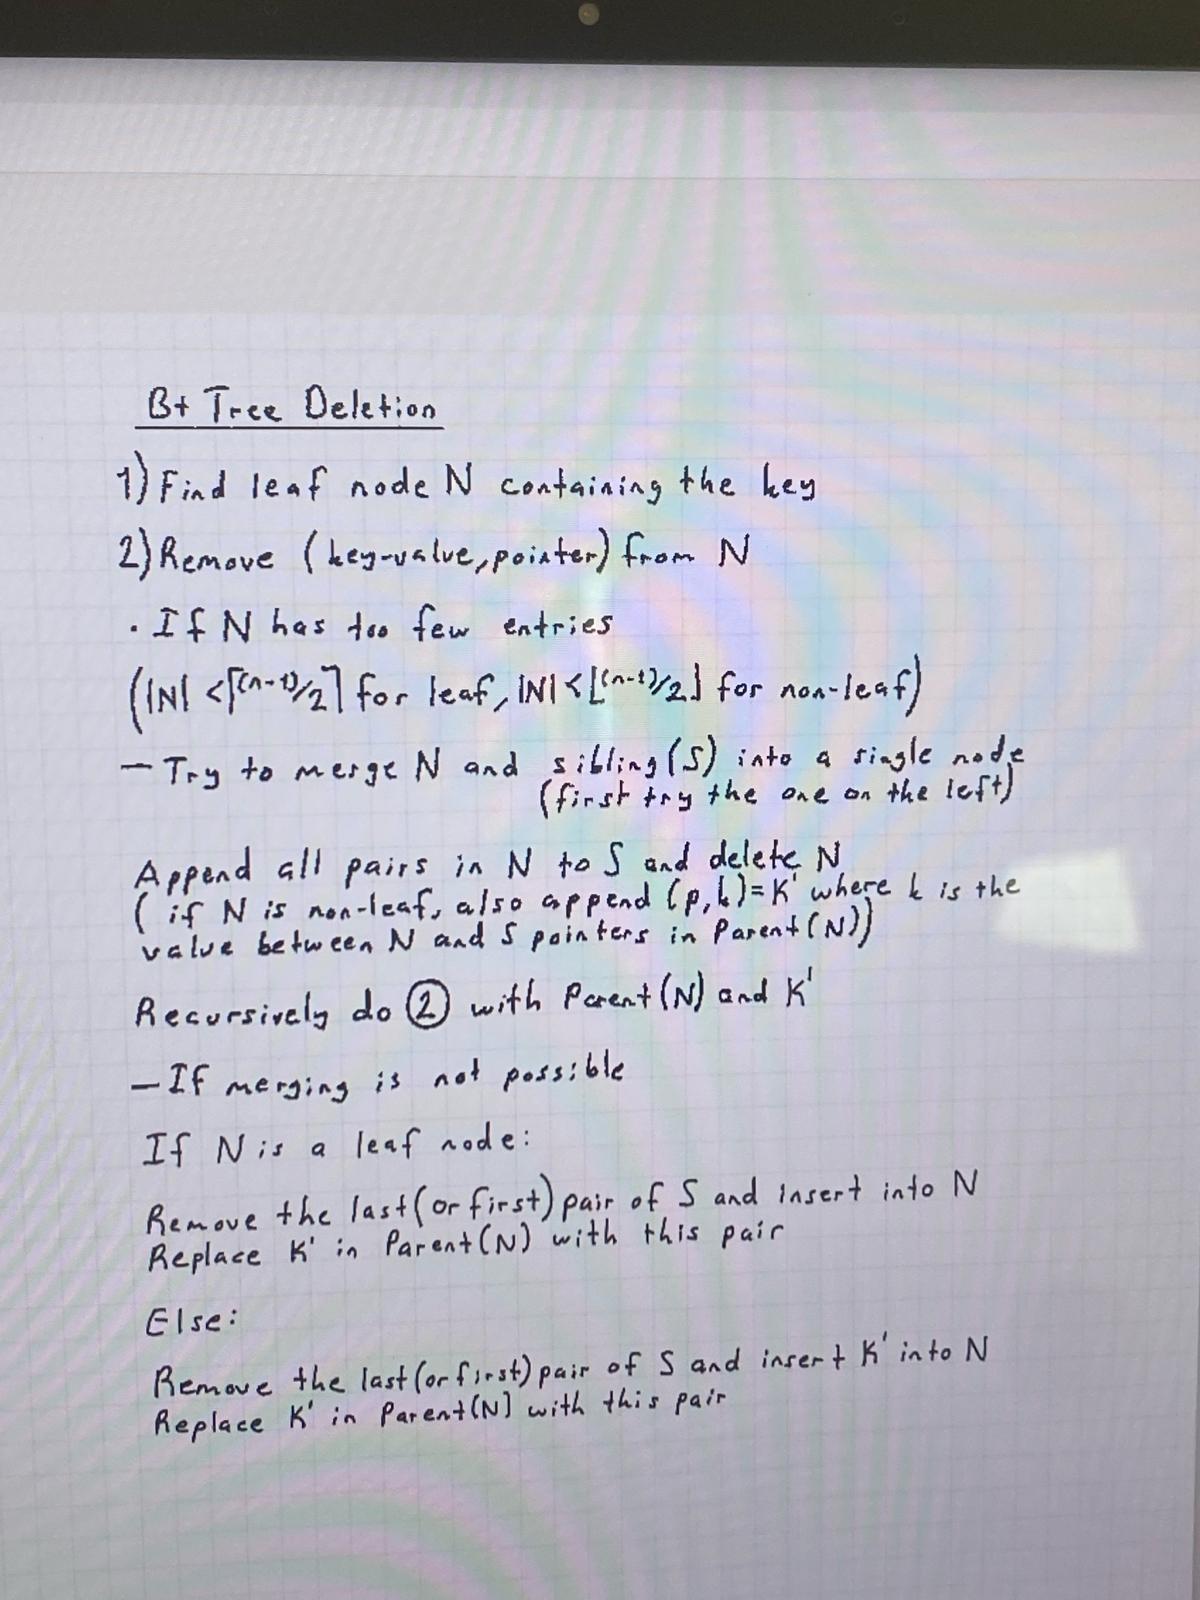 B+ Tree Deletion
1) Find leaf node N containing the key
2) Remove (key-value, pointer) from N
· If N has too few entries
(|N| < ⌈(n-1)/2⌉ for leaf, |N| < ⌊(n-1)/2⌋ for non-leaf)
— Try to merge N and sibling (S) into a single node
(first try the one on the left)
Append all pairs in N to S and delete N
( if N is non-leaf, also append (p,k)=K' where k is the
value between N and S pointers in Parent(N))
Recursively do ② with Parent (N) and K'
— If merging is not possible
If N is a leaf node:
Remove the last (or first) pair of S and insert into N
Replace K' in Parent(N) with this pair
Else:
Remove the last (or first) pair of S and insert K' into N
Replace K' in Parent(N) with this pair